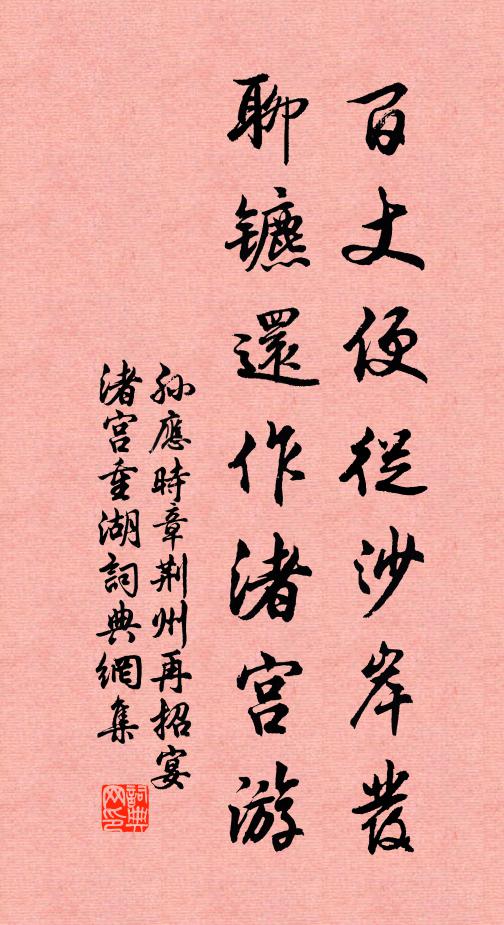 百丈便從沙岸發
聊鑣還作渚宮游
孫應時章荆州再招宴
渚宮重湖詞典網集
詞典網印